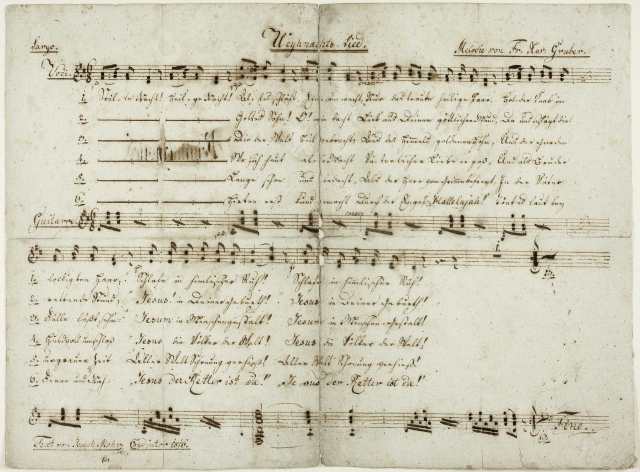 Weyhnachts-Lied.
Largo. Melodie von Fr. Xav. Gruber.
Voci.
1. Stille Nacht! Heilige Nacht! Alles schläft; Einsam wacht Nur das traute heilige Paar. Holder Knab' im
2. Gottes Sohn! O! wie lacht Lieb' aus Deinem göttlichen Mund, Da uns schlägt die
3. Die der Welt Heil gebracht, Aus des Himmels goldenen Höhn, Aus der Gnaden
4. Wo sich heut alle Macht Väterlicher Liebe ergoß, Und als Bruder
5. Lange schon uns bedacht, Als der Herr vom Grimme befreyt, In der Väter
6. Hirten erst kund gemacht Durch der Engel Hallelujah! Tönt es laut bey
Guitarre
1. lockigten Haar; Schlafe in himmlischer Ruh! Schlafe in himmlischer Ruh!
2. rettende Stund, Jesus! in Deiner Geburth! Jesus in Deiner Geburth!
3. Fülle läßt sehn Jesum in Menschengestalt! Jesum in Menschengestalt!
4. Huldvoll umschloß Jesus die Völker der Welt! Jesus die Völker der Welt!
5. urgrauer Zeit Aller Welt Schonung verhieß! Aller Welt Schonung verhieß!
6. Ferne und Nah: Jesus der Retter ist da! Jesus der Retter ist da!
Fine.
Text von Joseph Mohr Coadjutor 1816.